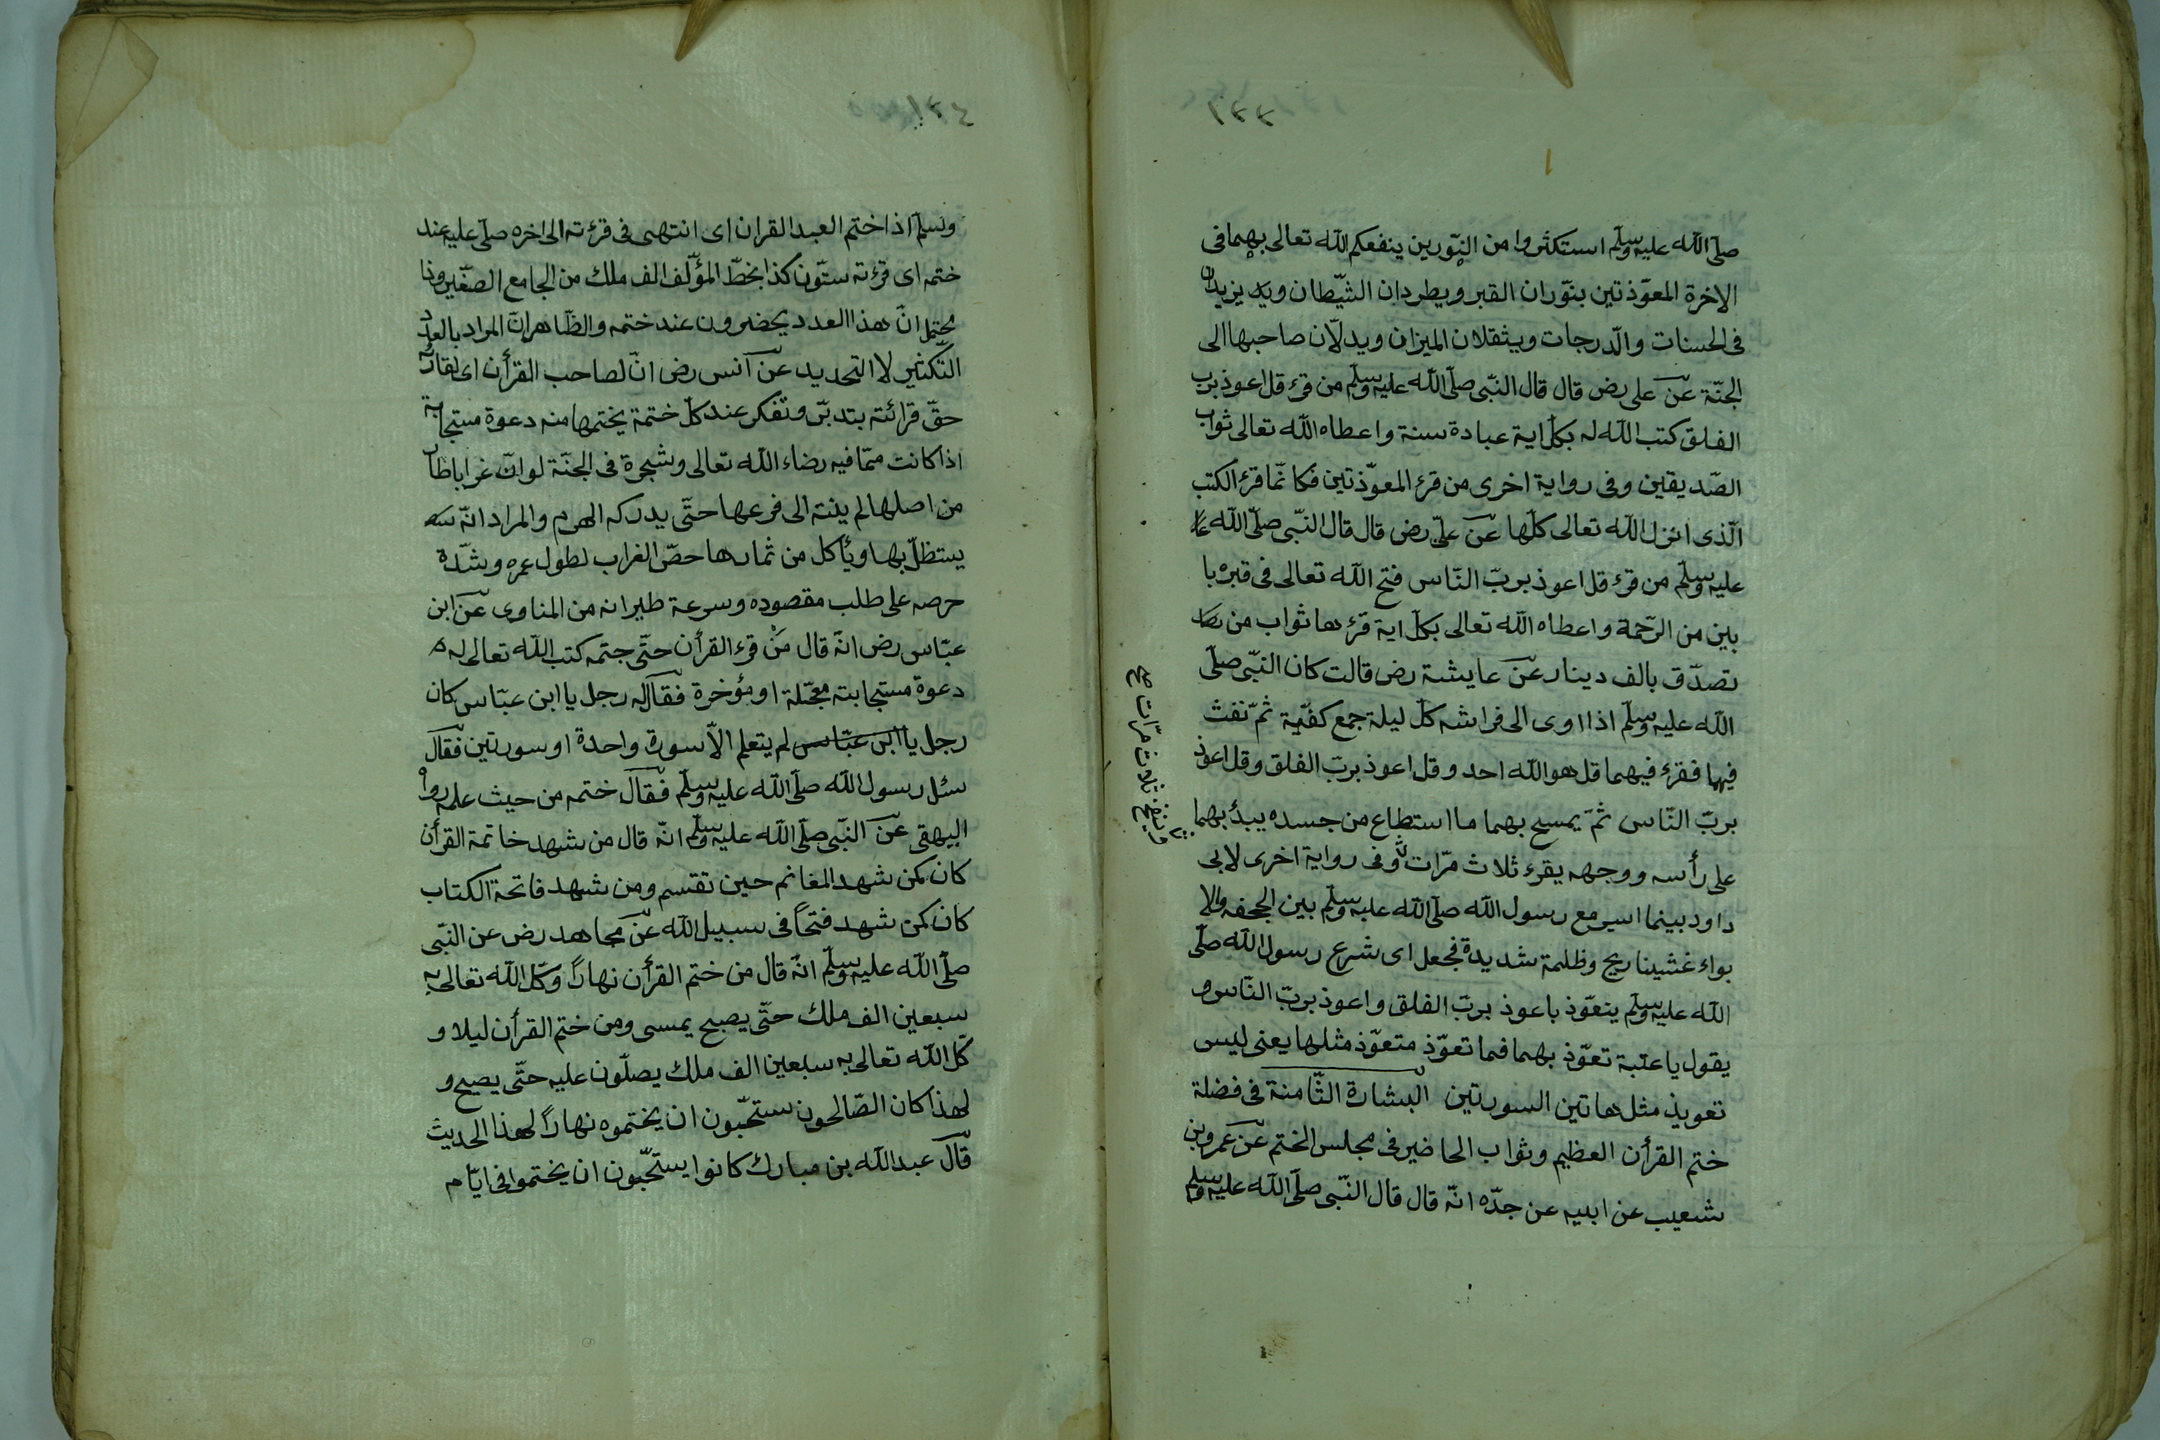 ١٣٣
صلّى الله عليه وسلّم استكثروا من النّورين ينفعكم الله تعالى بهما فى
الاخرة المعوّذتين ينوّران القبر ويطردان الشّيطان ويزيدان
فى الحسنات والدّرجات ويثقلان الميزان ويدلّان صاحبها الى
الجنّة عن على رض قال قال النّبى صلّى الله عليه وسلّم من قرء قل اعوذ برب
الفلق كتب الله له بكلّ اية عبادة سنة واعطاه الله تعالى ثواب
الصّديقين وفى رواية اخرى من قرء المعوّذتين فكانّما قرء الكتب
الّذى انزل الله تعالى كلّها عن علىّ رض قال قال النّبى صلّى الله
عليه وسلّم من قرء قل اعوذ بربّ النّاس فتح الله تعالى فى قبره با
بين من الرّحمة واعطاه الله تعالى بكلّ اية قرءها ثواب من
تصدّق بالف دينار عن عايشة رض قالت كان النّبى صلّى
الله عليه وسلّم اذا اوى الى فراشه كلّ ليلة جمع كفّيه ثمّ نفث
فيها فقرء فيهما قل هو الله احد وقل اعوذ بربّ الفلق وقل اعوذ
بربّ النّاس ثمّ يمسح بهما ما استطاع من جسده يبدؤ بهما
على رأسه ووجهه يقرء ثلاث مرّات وفى رواية اخرى لابى
داود بينما اسير مع رسول الله صلّى الله عليه وسلّم بين الجحفه والا
بواء غشينا ريح وظلمة شديدة فجعل اى شرع رسول الله صلّى
الله عليه وسلّم يتعوّذ باعوذ بربّ الفلق واعوذ بربّ النّاس و
يقول يا عتبة تعوّذ بهما فما تعوّذ متعوّذ مثلها يعنى ليس
تعويذ مثل هاتين السورتين البشارة الثّامنة فى فضلة
ختم القرأن العظيم وثواب الحاضير فى مجلس الختم عن عمرو بن
شعيب عن ابيه عن جدّه انّه قال قال النّبى صلّى الله عليه وسلّم
وينفخ ثلاث مرّات صح
١٣٤
وسلّم اذا ختم العبد القران اى انتهى فى قرءته الى اخره صلّى عليه عند
ختمه اى قرءته ستّون كذا بخطّ المؤلّف الف ملك من الجامع الصّغير وذا
يحتمل انّ هذا العدد يحضرون عند ختمه والظّاهر انّ المراد بالعدد
التّكثير لا التحديد عن انس رض انّ لصاحب القرأن اى لقارئه
حقّ قرائته بتدبّر وتفكر عند كلّ ختمة يختمها منه دعوة مستجابة
اذا كانت ممّا فيه رضاء الله تعالى وشجرة فى الجنّة لو انّ غرابا طار
من اصلها لم ينته الى فرعها حتّى يدركه الهرم والمراد انّه
يستظلّ بها ويأكل من ثمارها حصّ الغراب لطول عمره وشدّة
حرصه على طلب مقصوده وسرعة طيرانه من المناوى عن ابن
عبّاس رض انّه قال من قرء القرأن حتّى ختمه كتب الله تعالى له
دعوة مستجابته معجّلة او مؤخرة فقال له رجل يا ابن عبّاس كان
رجل يا ابن عبّاس لم يتعلم الّا سورة واحدة او سورتين فقال
سئل رسول الله صلّى الله عليه وسلّم فقال ختمه من حيث علمه رواه
البيهقى عن النّبى صلّى الله عليه وسلّم انّه قال من شهد خاتمة القرأن
كان كمن شهد المغانم حين تقتسم ومن شهد فاتحة الكتاب
كان كمن شهد فتحاً فى سبيل الله عن مجاهد رض عن النّبى
صلّى الله عليه وسلّم انّه قال من ختم القرأن نهاراً وكّل الله تعالى به
سبعين الف ملك حتّى يصبح يمسى ومن ختم القرأن ليلا و
كّل الله تعالى به سبعين الف ملك يصلّون عليه حتّى يصبح و
لهذا كان الصّالحون ستحّبون ان يختموه نهاراً لهذا الحديث
قال عبد الله بن مبارك كانوا يستحّبون ان يختموا فى ايّام